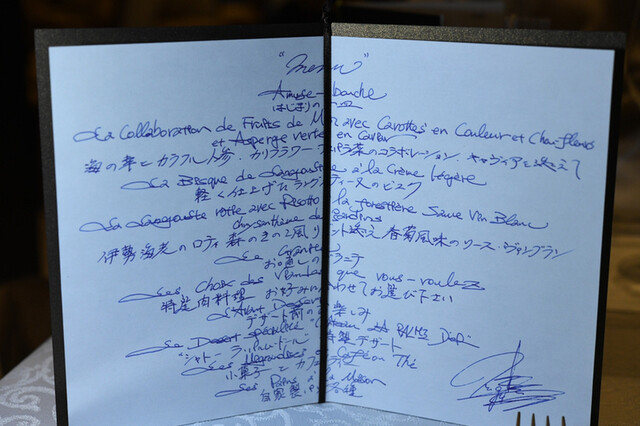 "Menu"
Amuse-bouche
はじまりの一皿
La Collaboration de Fruits de Mer avec Carottes en Couleur et Chou-fleurs
et Asperge verte en Caviar
海の幸とカラフル人参、カリフラワー アスパラ菜のコラボレーション、キャヴィアを添えて
La Bisque de Langoustine à la Crème légère
軽く仕上げたラングスティーヌのビスク
La Langouste rôtie avec Risotto à la forestière Sauce Vin Blanc
chrysanthème de jardins
伊勢海老のロティ 森のきのこ風リゾット添え 春菊風味のソース・ヴァンブラン
Le Granité
お口直しのグラニテ
Les Choix des Viandes que vous-voulez
特産肉料理 お好みに合わせてお選び下さい
L'Avant Dessert
デザート前のお楽しみ
Le Dessert Spécialité
"シャトー 特製デザート
Les Mignardises Café ou Thé
小菓子とカフェ
Les Pains à la Maison
自家製パン各種